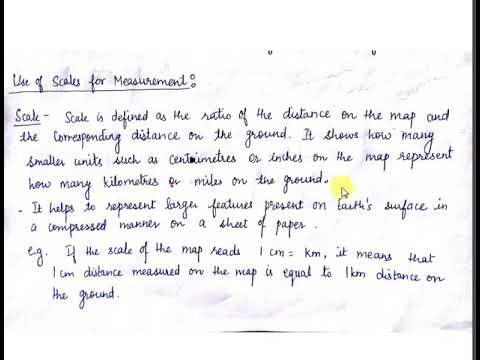 Use of Scales for Measurement:
Scale - Scale is defined as the ratio of the distance on the map and
the corresponding distance on the ground. It shows how many
smaller units such as centimetres or inches on the map represent
how many kilometres or miles on the ground.
- It helps to represent larger features present on Earth's surface in
a compressed manner on a sheet of paper.
e.g. If the scale of the map reads 1 cm = km, it means that
1 cm distance measured on the map is equal to 1km distance on
the ground.